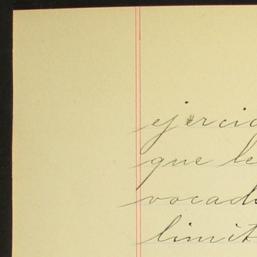 ejercic
que le
vocad
limit